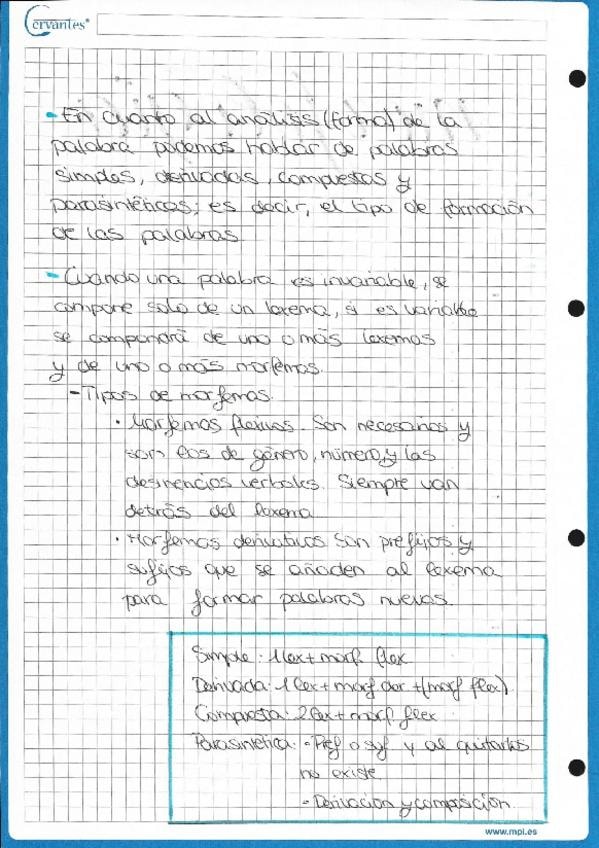 Cervantes
- En cuanto al análisis (forma) de la
palabra podemos hablar de palabras
simples, derivadas, compuestas y
parasintéticas; es decir, el tipo de formación
de las palabras
- Cuando una palabra es invariable, se
compone solo de un lexema, si es variable
se compondrá de uno o más lexemas
y de uno o más morfemas.
- Tipos de morfemas.
· Morfemas flexivos. Son necesarios y
son los de género, número, y las
desinencias verbales. Siempre van
detrás del lexema
· Morfemas derivativos son prefijos y
sufijos que se añaden al lexema
para formar palabras nuevas.
Simple: 1lex + morf. flex
Derivada: 1 lex + morf der + (morf flex).
Compuesta: 2lex + morf flex
Parasintética: - Pref o suf y al quitarlos
no existe
- Derivación y composición.
www.mpl.es